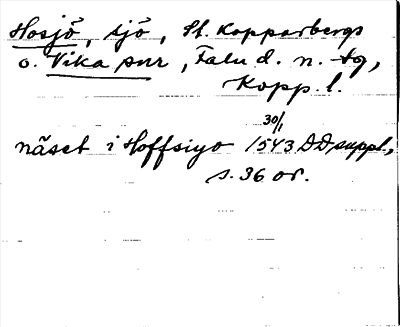 Hosjö, sjö, St. Kopparbergs
o. Vika snr, Falu d. n. tg,
Kopp. l.
30/1
näset i Hoffsiyo 1543 DD suppl.,
s. 36 or.